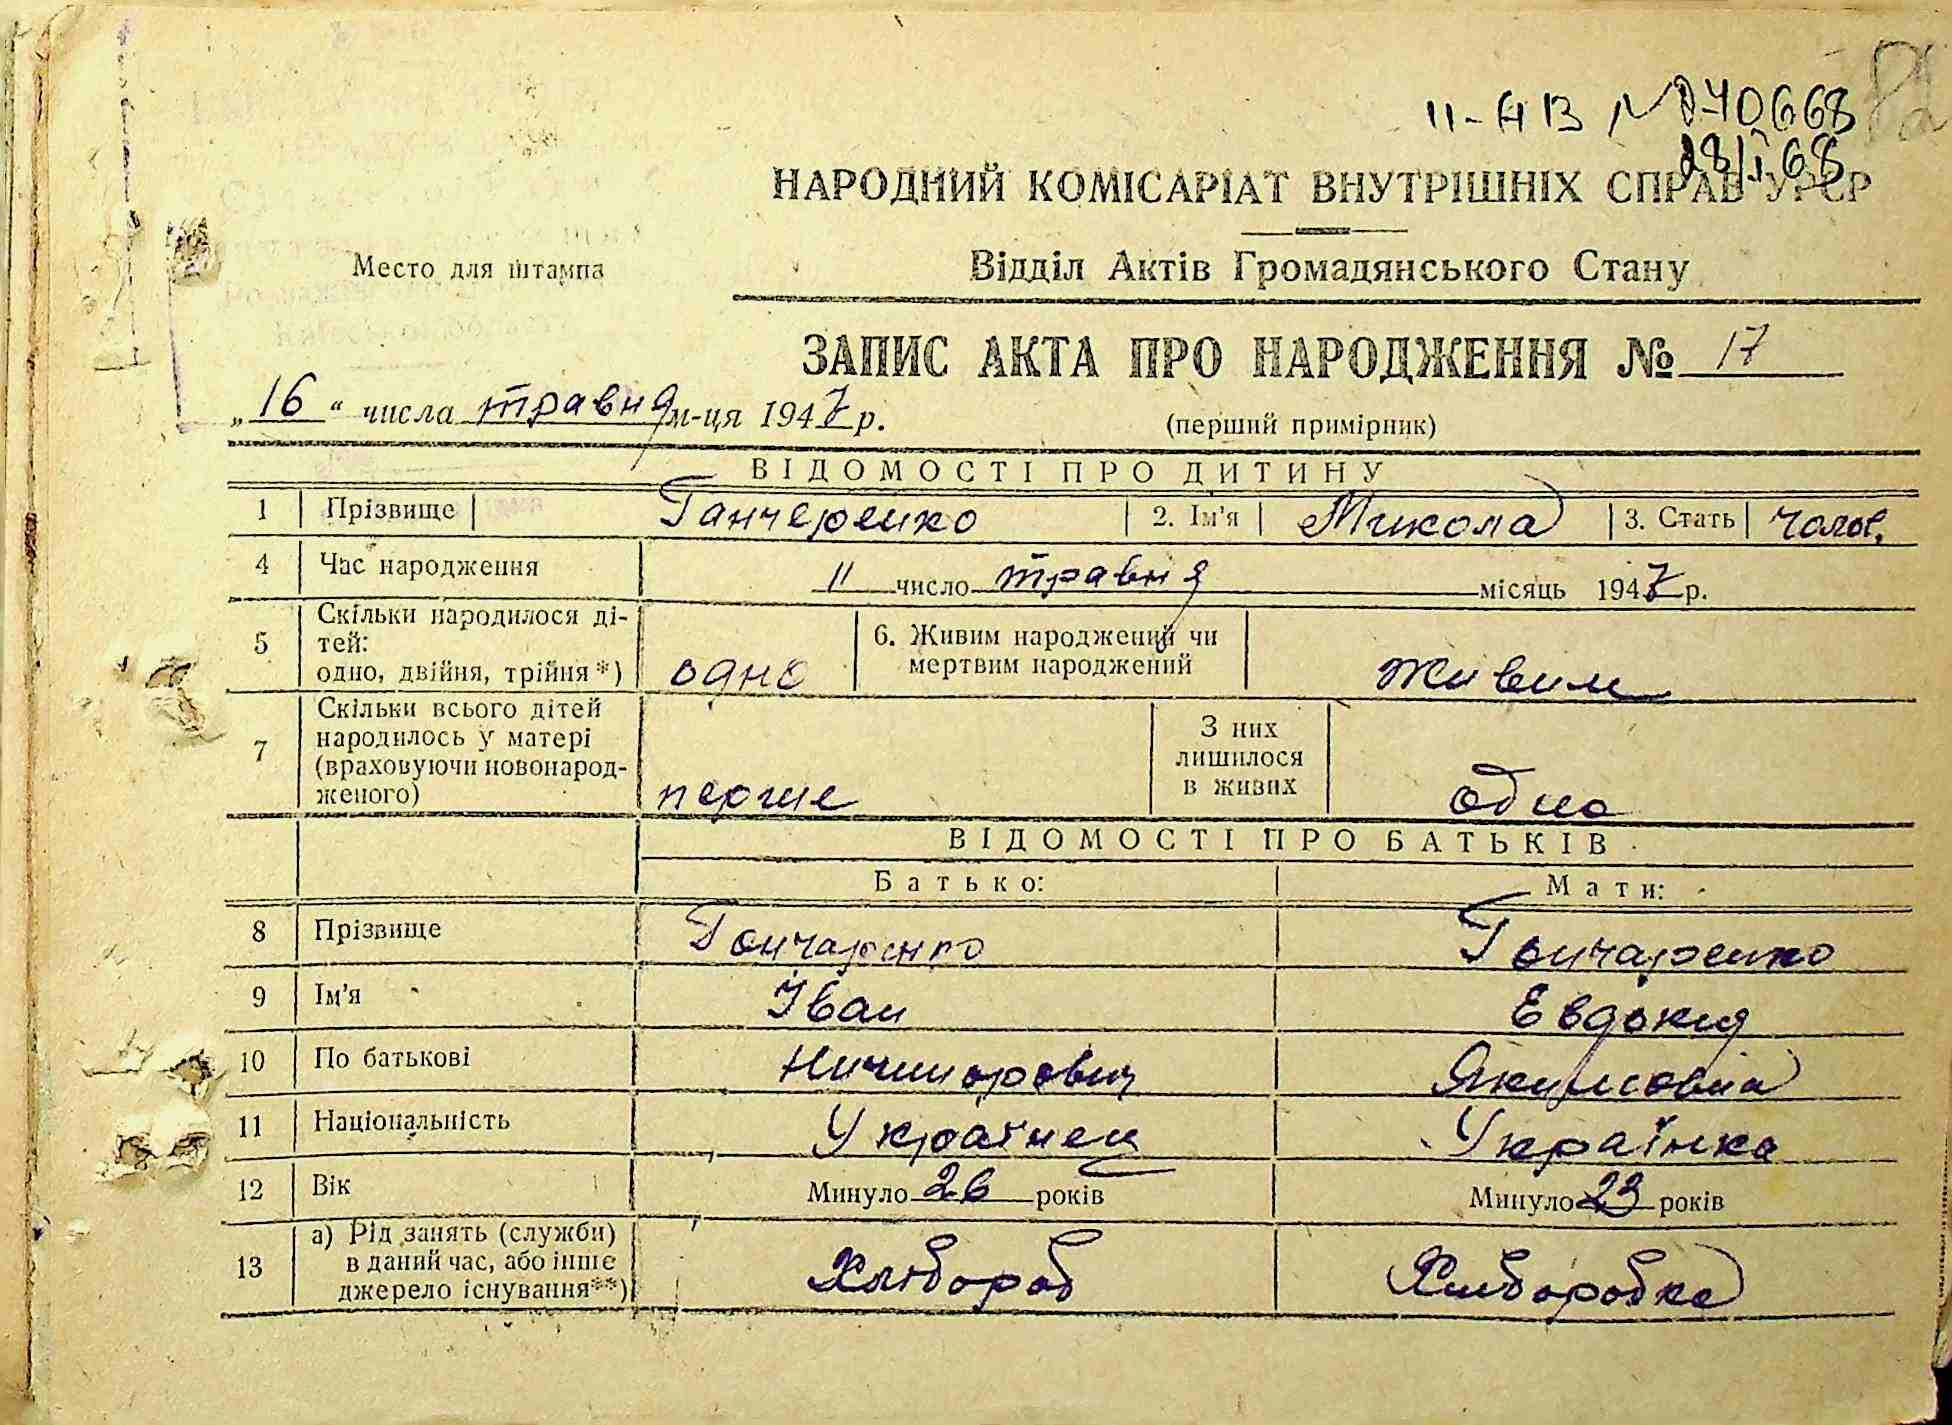 II-НВ № 040668
28/I 68
НАРОДНИЙ КОМІСАРІАТ ВНУТРІШНІХ СПРАВ УРСР
Место для штампа
Відділ Актів Громадянського Стану
ЗАПИС АКТА ПРО НАРОДЖЕННЯ № 17
„16“ числа травня м-ця 1947 р.
(перший примірник)
ВІДОМОСТІ ПРО ДИТИНУ
1 Прізвище Ганчеренко 2. Ім'я Микола 3. Стать чолов.
4 Час народження 11 число травня місяць 1947 р.
5 Скільки народилося ді-
тей:
одно, двійня, трійня*) одно
6. Живим народжений чи
мертвим народжений живим
7 Скільки всього дітей
народилось у матері
(враховуючи новонарод-
женого) перше
З них
лишилося
в живих одно
ВІДОМОСТІ ПРО БАТЬКІВ
Батько: Мати:
8 Прізвище Гончаренко Гончаренко
9 Ім'я Іван Евдокия
10 По батькові Ничипорович Якимовна
11 Національність Українец Українка
12 Вік Минуло 26 років Минуло 23 років
13 а) Рід занять (служби)
в даний час, або інше
джерело існування**) Хлібороб Хліборобка